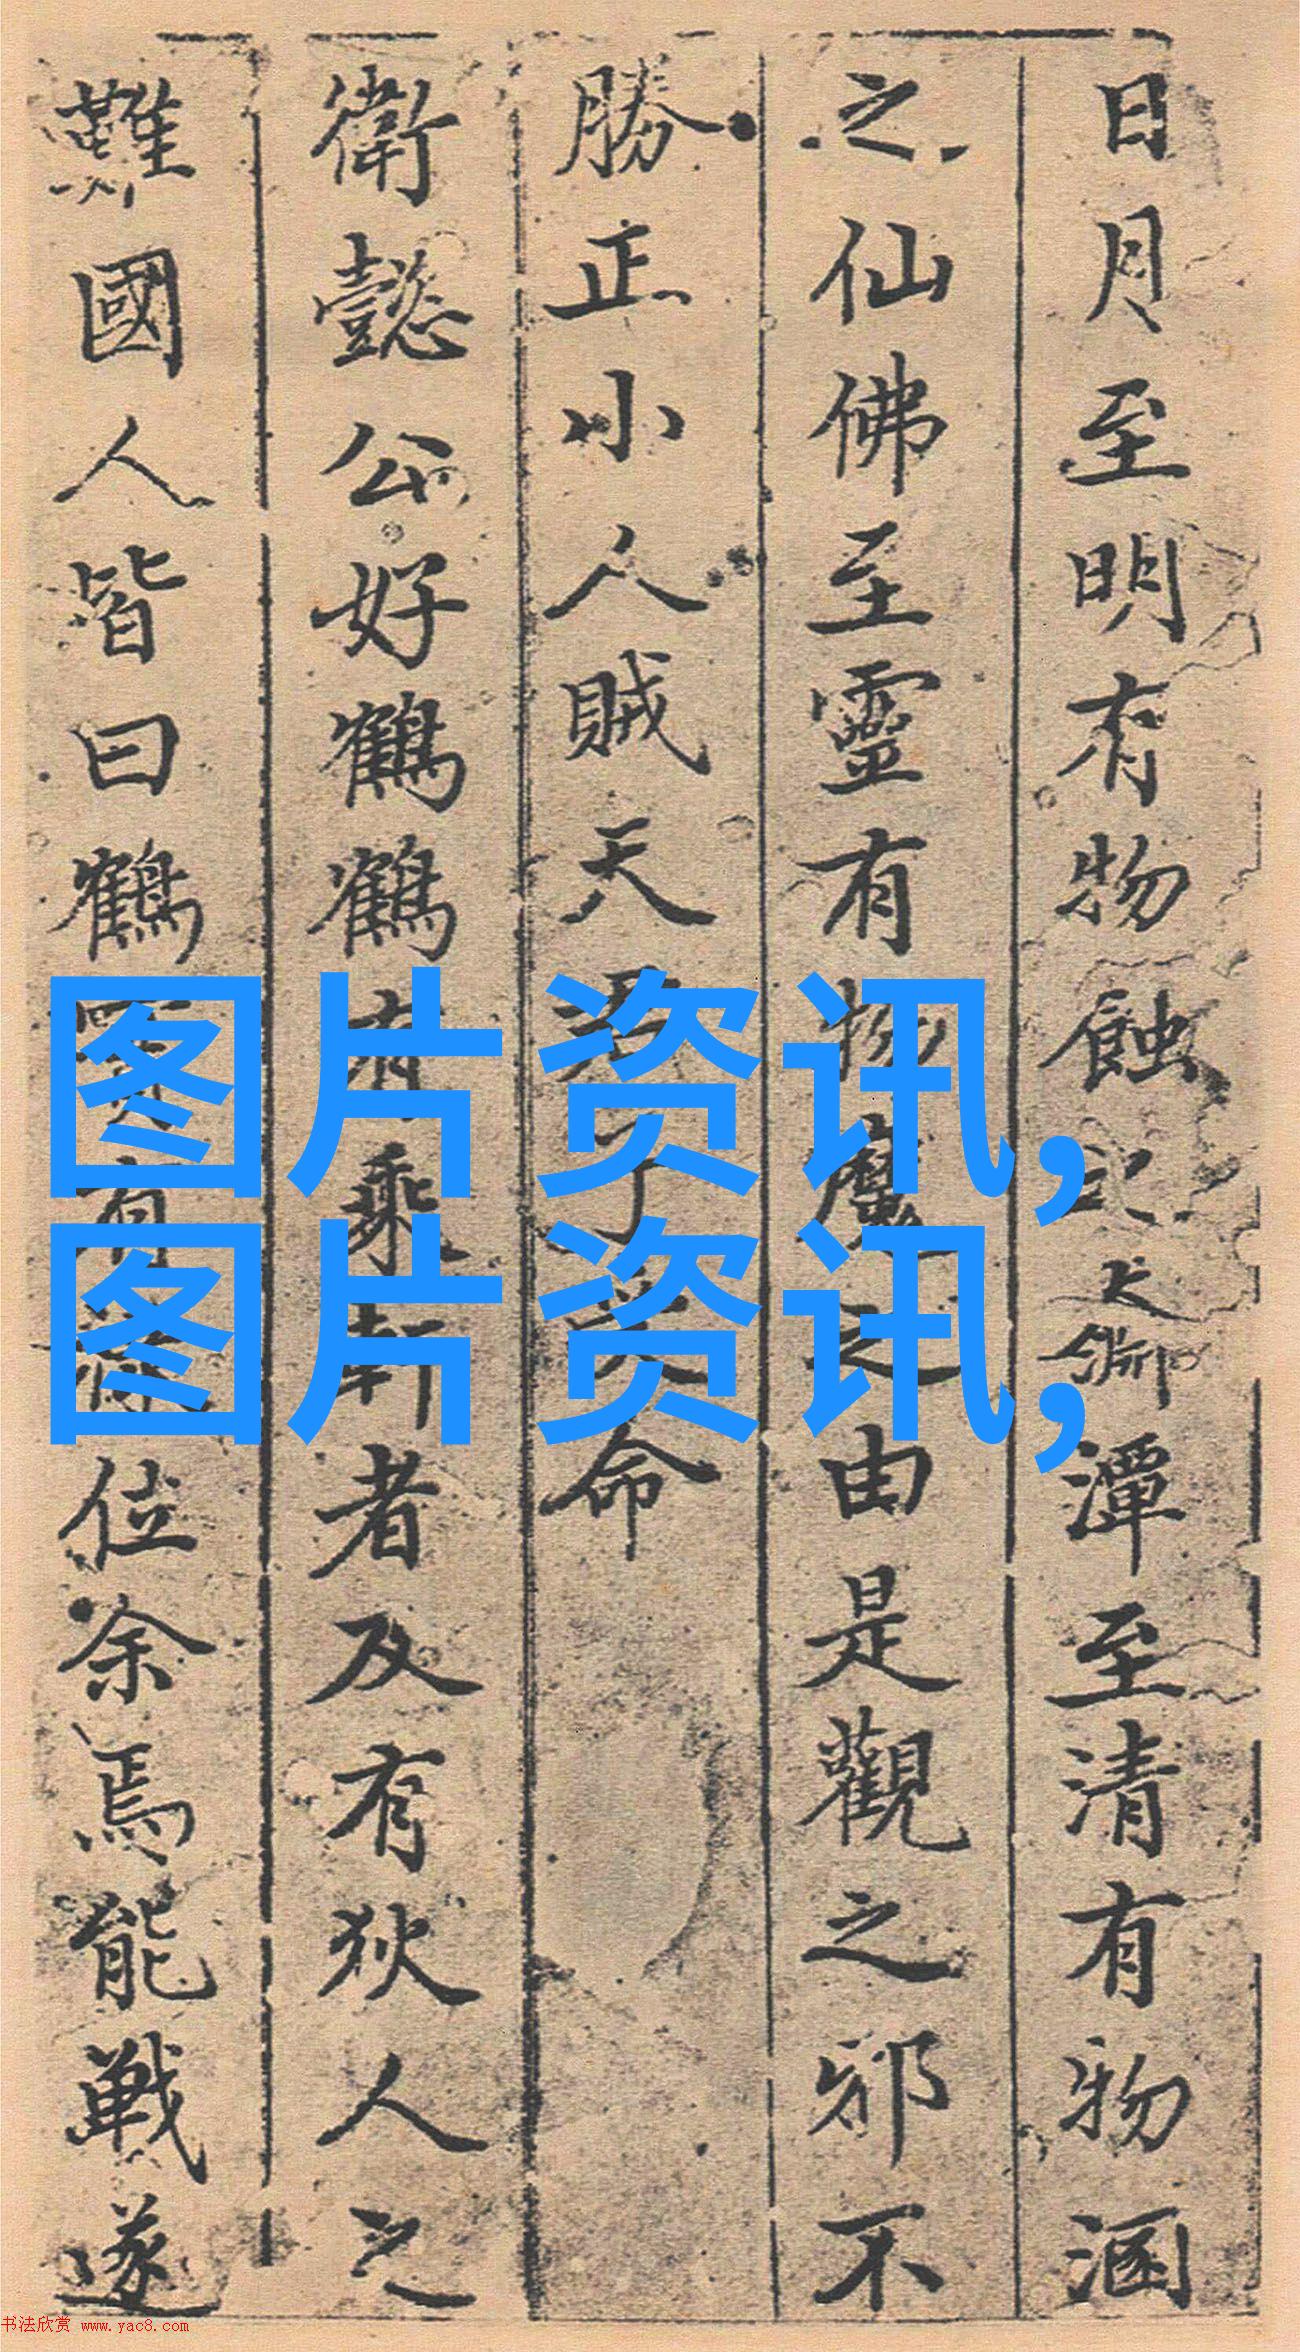 日月至明有物蝕之大淵潭至清有物涵
之仙佛至靈有物魔之由是觀之邪不
勝正小人賊天君子立命
衛懿公好鶴鶴有乘軒者及有狄人之
難國人皆曰鶴實有禄位余焉能戰遂
图片资讯,
图片资讯,
书法欣赏 www.yac8.com